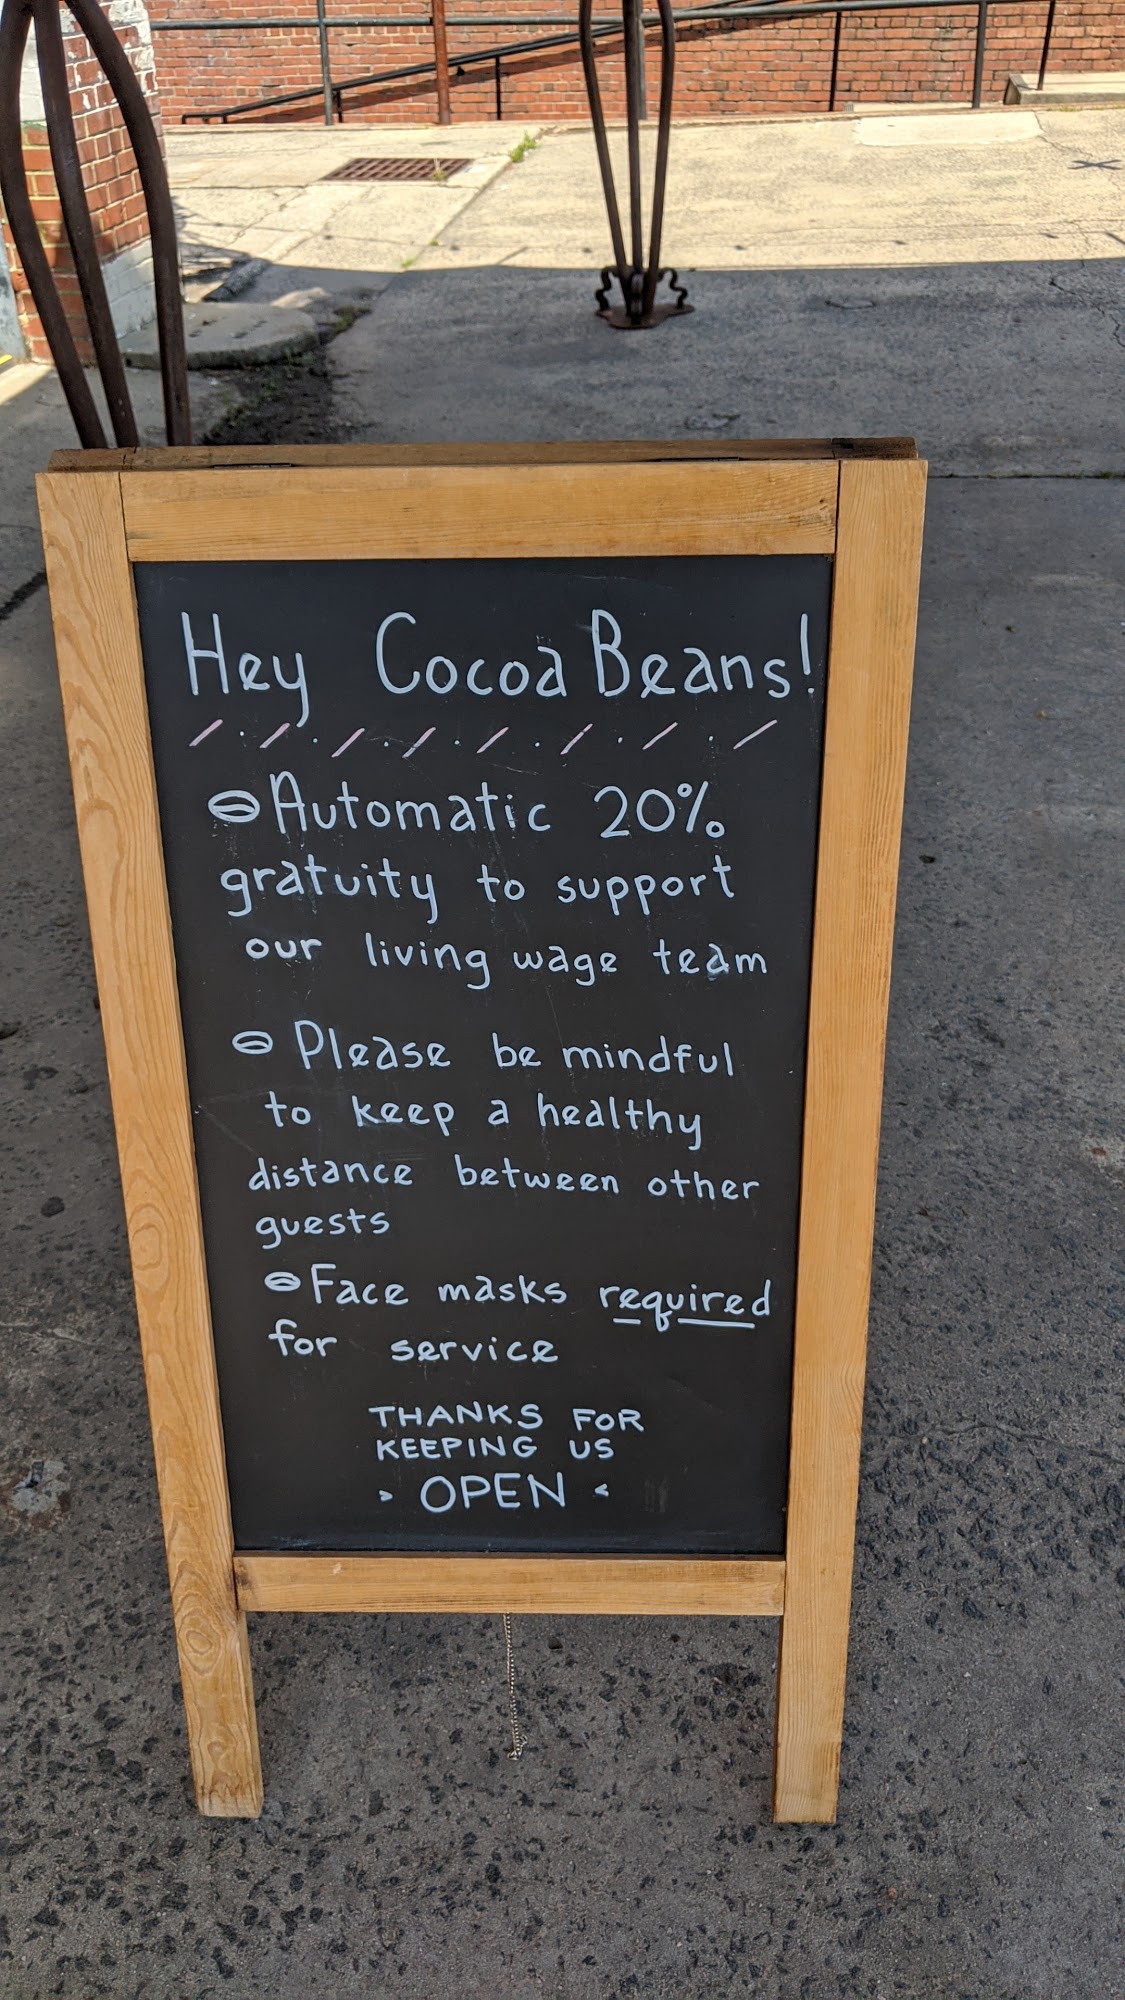 Hey Cocoa Beans!
Automatic 20%
gratuity to support
our living wage team
Please be mindful
to keep a healthy
distance between other
guests
Face masks required
for service
THANKS FOR
KEEPING US
OPEN